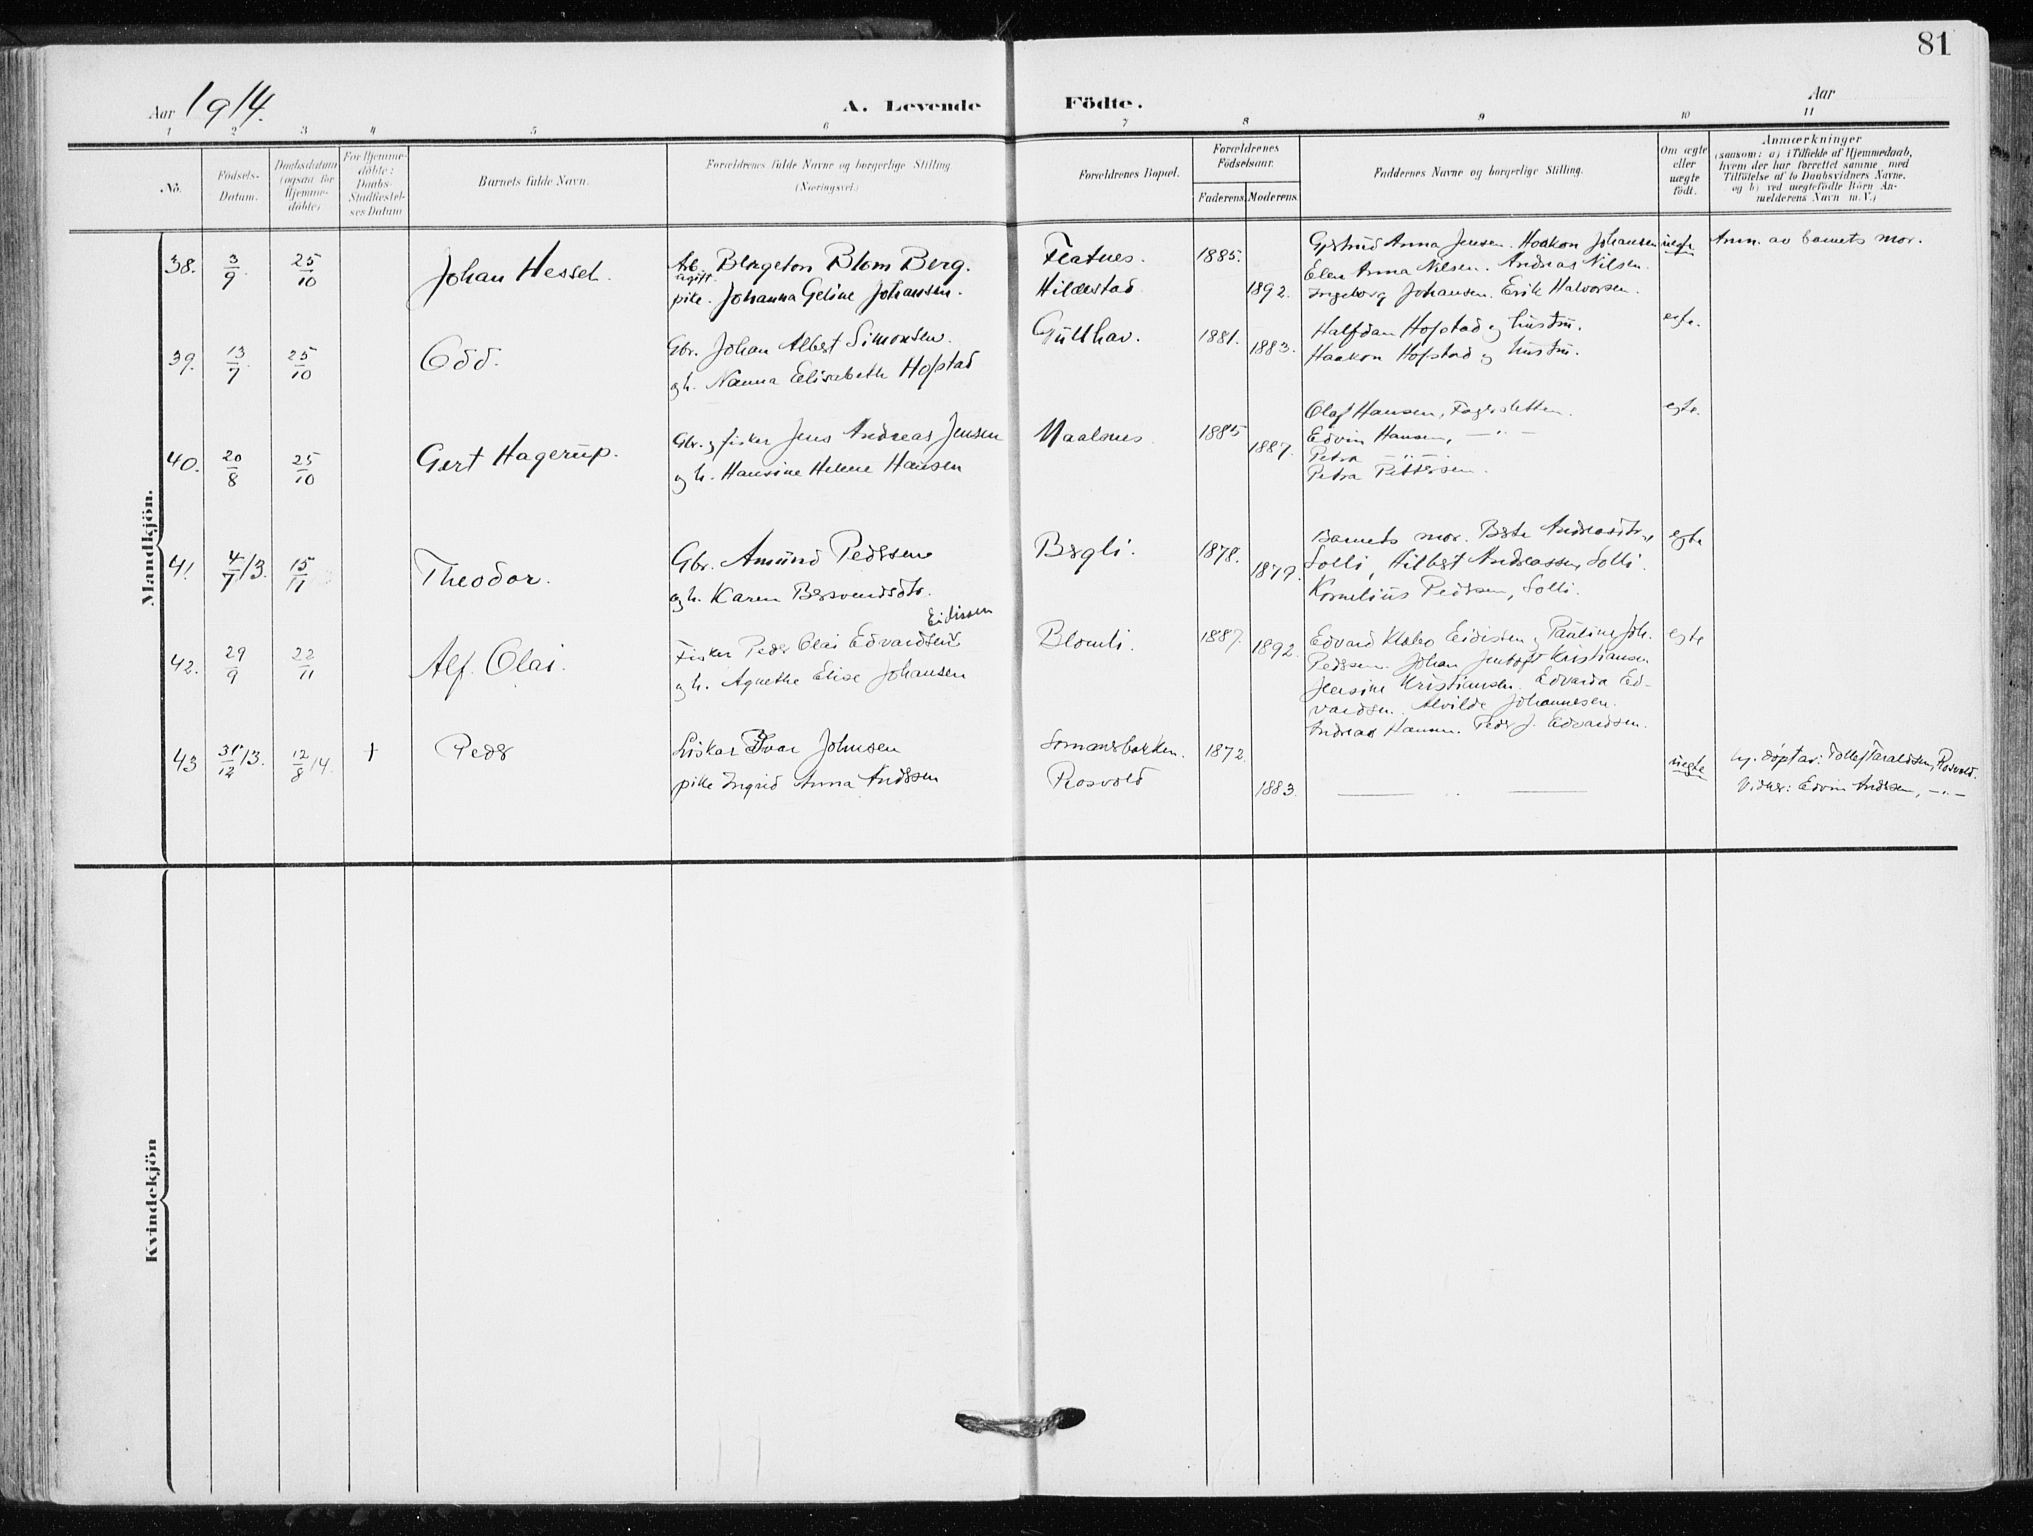 81
Aar 1914.
A. Levende Födte.
Aar
1 2 3 4 5 6 7 8 9 10 11
No.
Födsels-
Datum.
Daabsdatum
(ogsaa for
Hjemme-
døbte)
For Hjemme-
döbte:
Daabs-
Stadfæstel-
ses Datum
Barnets fulde Navn.
Forældrenes fulde Navne og borgerlige Stilling
(Næringsvei.)
Forældrenes Bopæl.
Forældrenes
Födselsaar.
Faderens. Moderens.
Faddernes Navne og borgerlige Stilling.
Om ægte
eller
uægte
født.
Anmærkninger
(saasom: a) i Tilfælde af Hjemmedaab,
hvem der har forrettet samme med
Tilföielse af to Daabsvidners Navne.
og b) ved uegtefödte Börn An-
melderens Navn m. V.)
Mandkjön.
38. 3/9 25/10 Johan Hessel.
Ab. Bergeton Blom Berg.
ugift
pike. Johanna Geline Johansen.
Flatnes.
Hildestad
1885.
1892.
Gertrud Anna Jensen. Haakon Johansen
Elen Anna Nilsen. Andreas Nilsen.
Ingeborg Johansen. Erik Halvorsen.
uegte
Anm. av barnets mor.
39. 13/7 25/10 Odd.
Gbr. Johan Albert Simonsen.
og h. Nanna Elisabeth Hofstad
Gullhav.
1881.
1883.
Halfdan Hofstad og hustru.
Haakon Hofstad og hustru.
egte.
40. 20/8 25/10 Gert Hagerup.
Gbr. og fisker Jens Andreas Jensen
og h. Hansine Helene Hansen
Maalsnes.
1885
1887.
Olaf Hansen, Fagersletten.
Edvin Hansen, —"—
Petra —"—
Petra Pettersen.
egte.
41. 4/7 13. 15/11 Theodor.
Gbr. Amund Pedersen
og h. Karen Bersvendsdtr.
Bergli.
1878.
1879.
Barnets mor. Berte Andreasdtr.,
Solli, Hilbert Andreassen, Solli.
Kornelius Pedersen, Solli.
egte
42. 29/9 22/11 Alf Olai.
Eidissen
Fisker Peder Olai Edvardsen
og h. Agnethe Elise Johansen
Blomli.
1887.
1892.
Edvard Klabo Eidissen og Pauline Joh.
Pedersen. Johan Jentoft Kristiansen
Jensine Kristiansen. Edvarda Ed-
vardsen. Alvilde Johannesen.
Andreas Hansen. Peder J. Edvardsen.
egte
43 31/12 13. 12/8 14. + Peder
Fisker Ivar Johnsen
pike Ingrid Anna Andersen
Rosvold
1872.
1883.
uegte
hj. døpt av: Tollef Taraldsen, Rosvold.
Vidner: Edvin Andersen, —"—
Kvindekjön